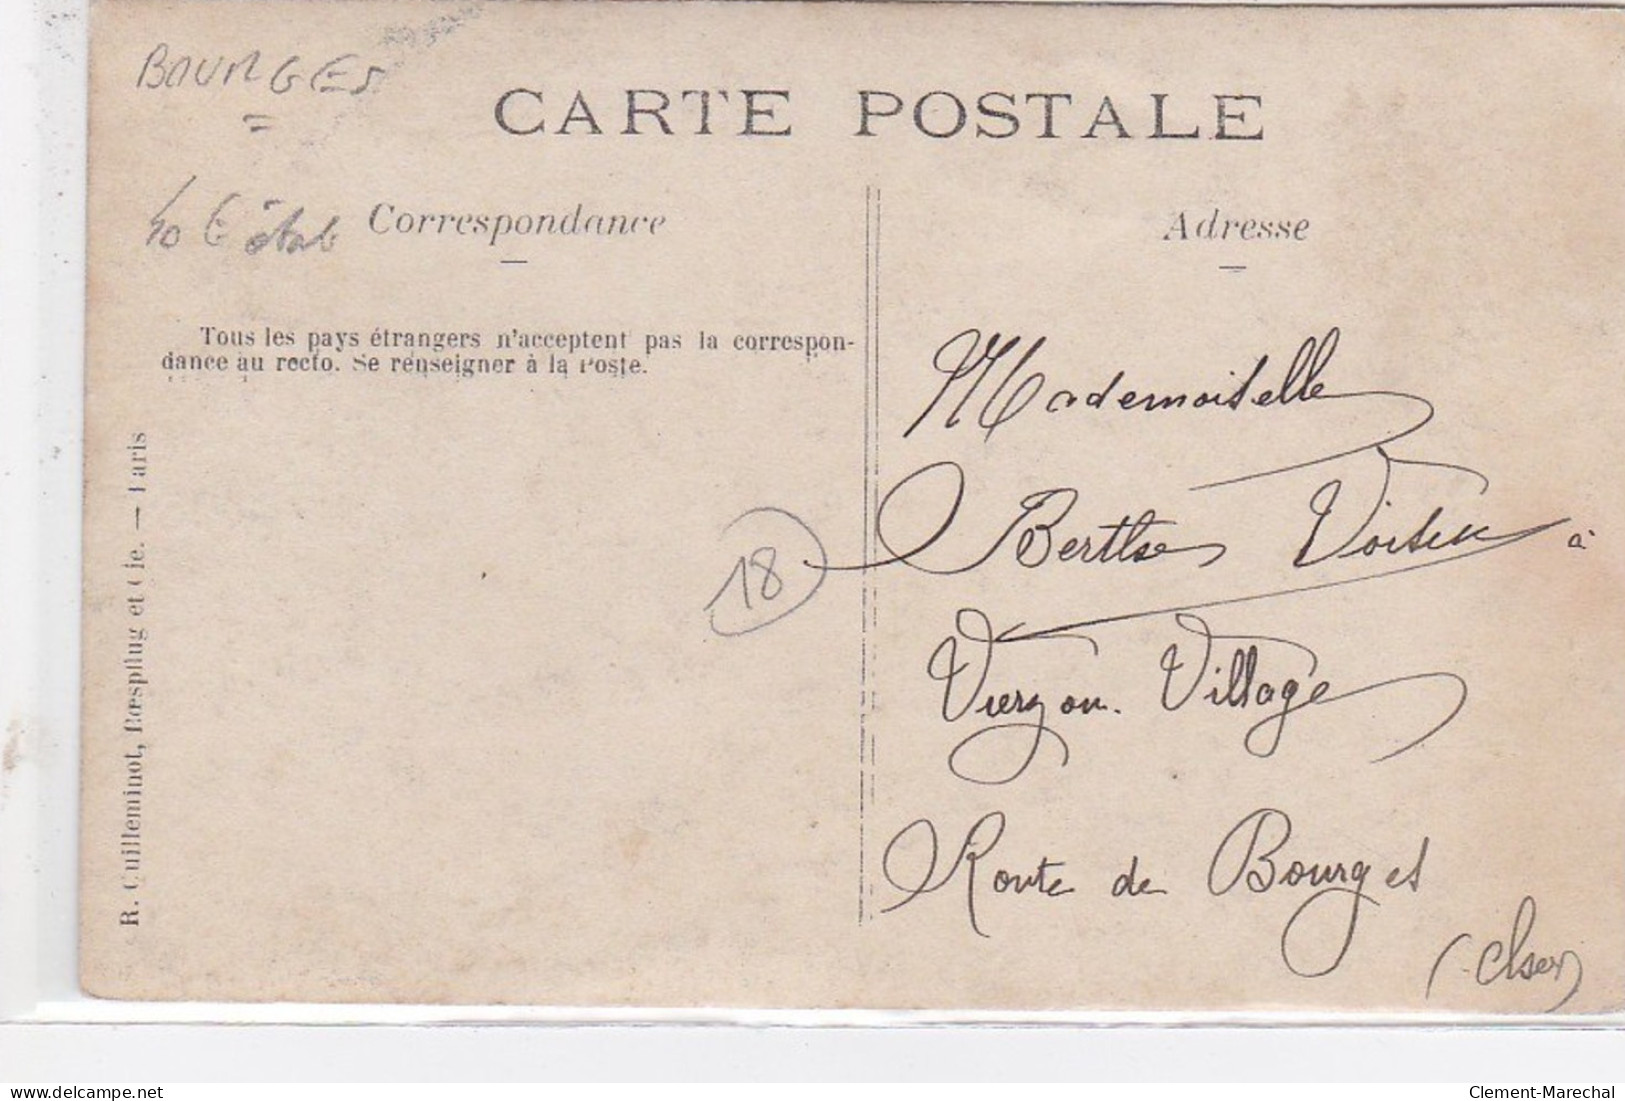 BOURGES
CARTE POSTALE
40 € état
Correspondance
Adresse
Tous les pays étrangers n'acceptent pas la correspon-
dance au recto. Se renseigner à la Poste.
R. Guilleminot, Bœspflug et Cie. — Paris
18
Mademoiselle
Berthe Voisin à
Vierzon. Village
Route de Bourges
(Cher)
delcampe.net
Clement-Marechal